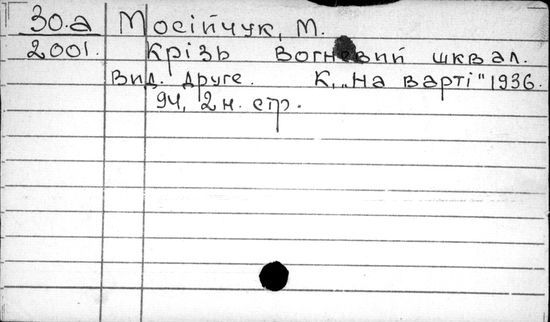 30.а Мосійчук, М.
2001. Крізь вогневий шквал.
Вид. друге. К, „На варті" 1936.
94, 2 н. стр.